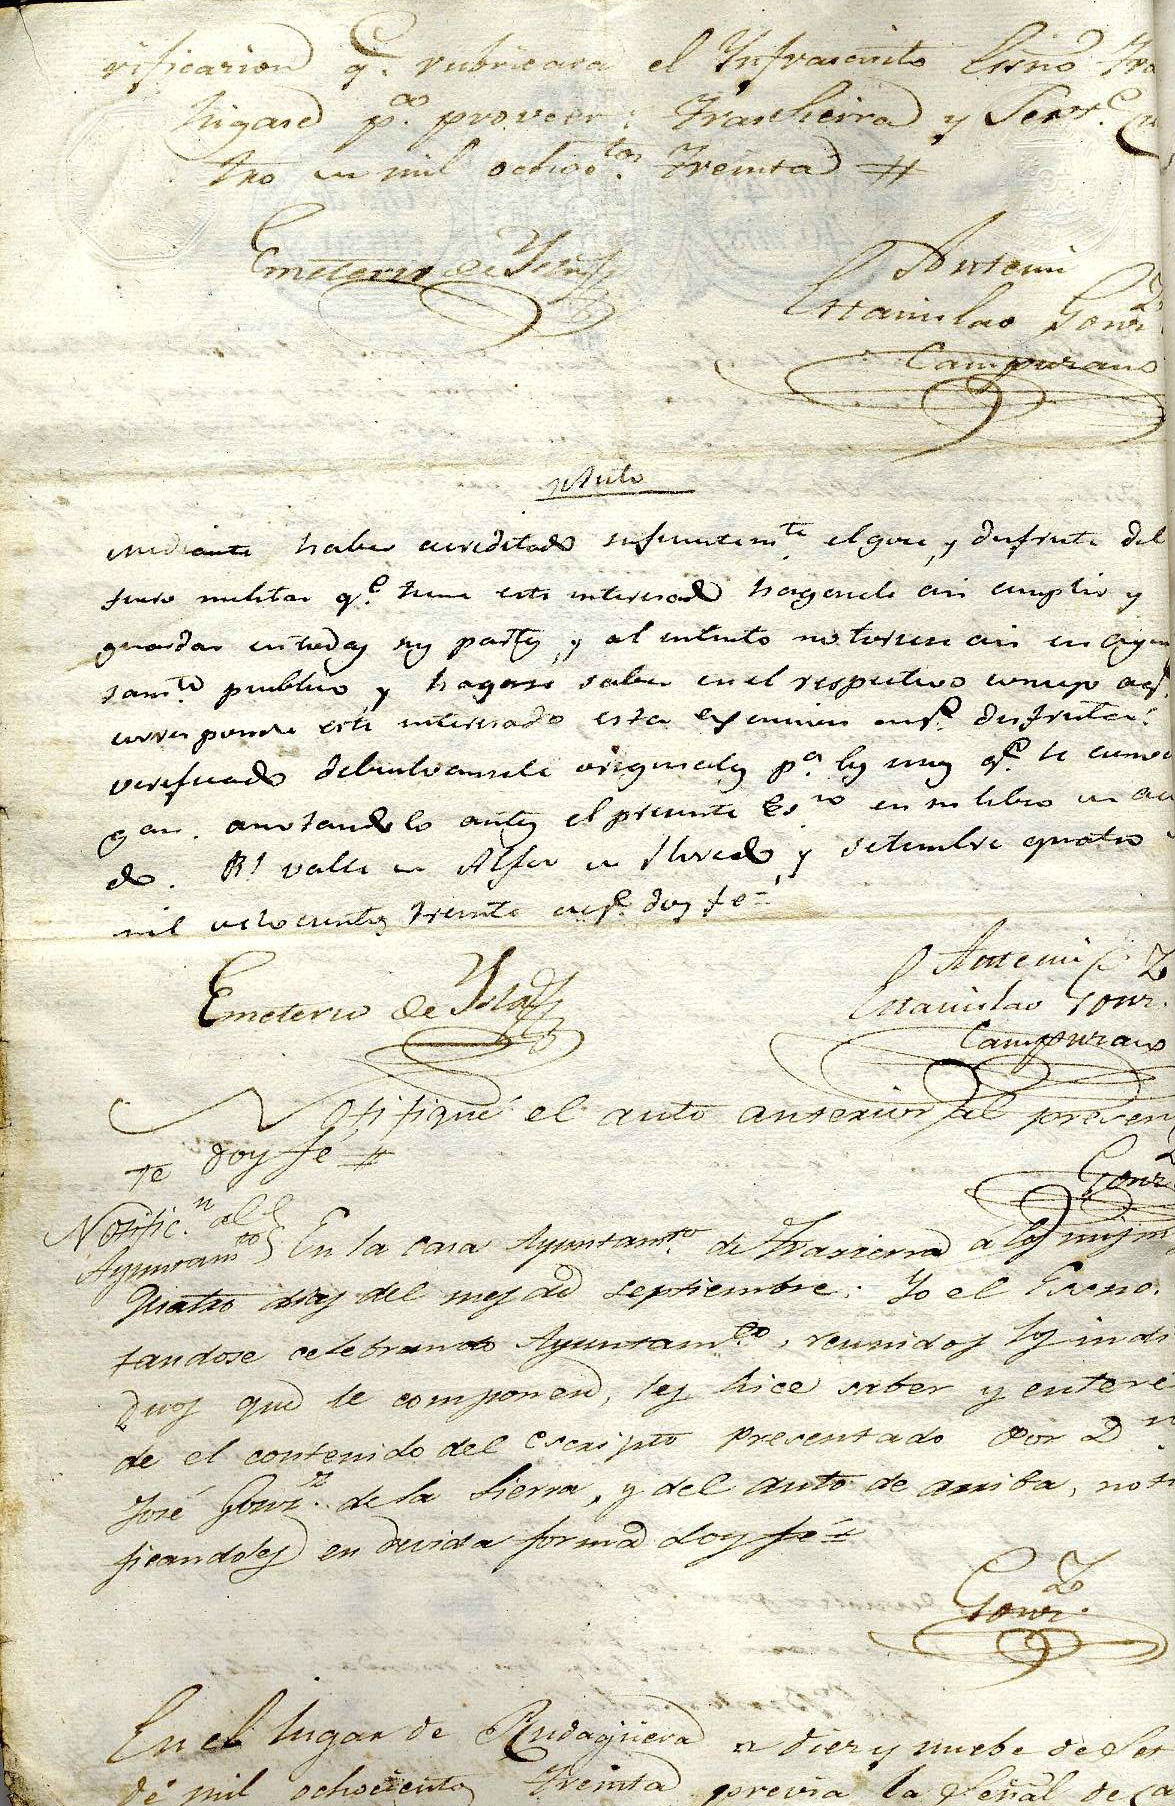 rificacion q.e rubricara el Ynfrascrito Essno. tra
higase p.a proveer: Trashierra y Sept.e Cu
tro de mil ochoc.tos treinta #
Emeterio de Ysla
Antemi
Estanislao Gonz.z
Campuzano
Auto
Mediante haber acreditado suficientem.te el goce, y disfrute del
fuero militar q.e tiene este interesado hagasele asi cumplir y
guardar en todas sus partes, y al intento notoriese asi en Ayun
tam.to publico, y hagase saber en el respectivo concejo aq.e
corresponde este interesado esta esencion q.e disfruta:
verificado debuelvansele originales p.a los usos q.e le conven
gan. anotandolo antes el presente Es.no en su libro de acu
do. Rl valle de Alfoz de Lloredo, y setiembre quatro
mil ochocientos treinta de q.e doy fé
Emeterio de Ysla
Antemi
Estanislao Gonz.z
Campuzano
Notifiqué el auto anterior al presen
te doy fé #
Gonz.z
Notific.n al
Ayuntam.to
En la casa Ayuntam.to de Trasierra a los mismos
quatro dias del mes de septiembre: Yo el Essno.
tandose celebrando Ayuntam.to, reunidos los indi
duos que le componen, les hice saber y enteré
de el contenido del escripto presentado por D.n
José Gonz.z de la Sierra, y del auto de arriba, noti
ficandoles en devida forma doy fé
Gonz.z
En el lugar de Rudagüera a diez y nuebe de Set
de mil ochocientos treinta previa la señal de ca